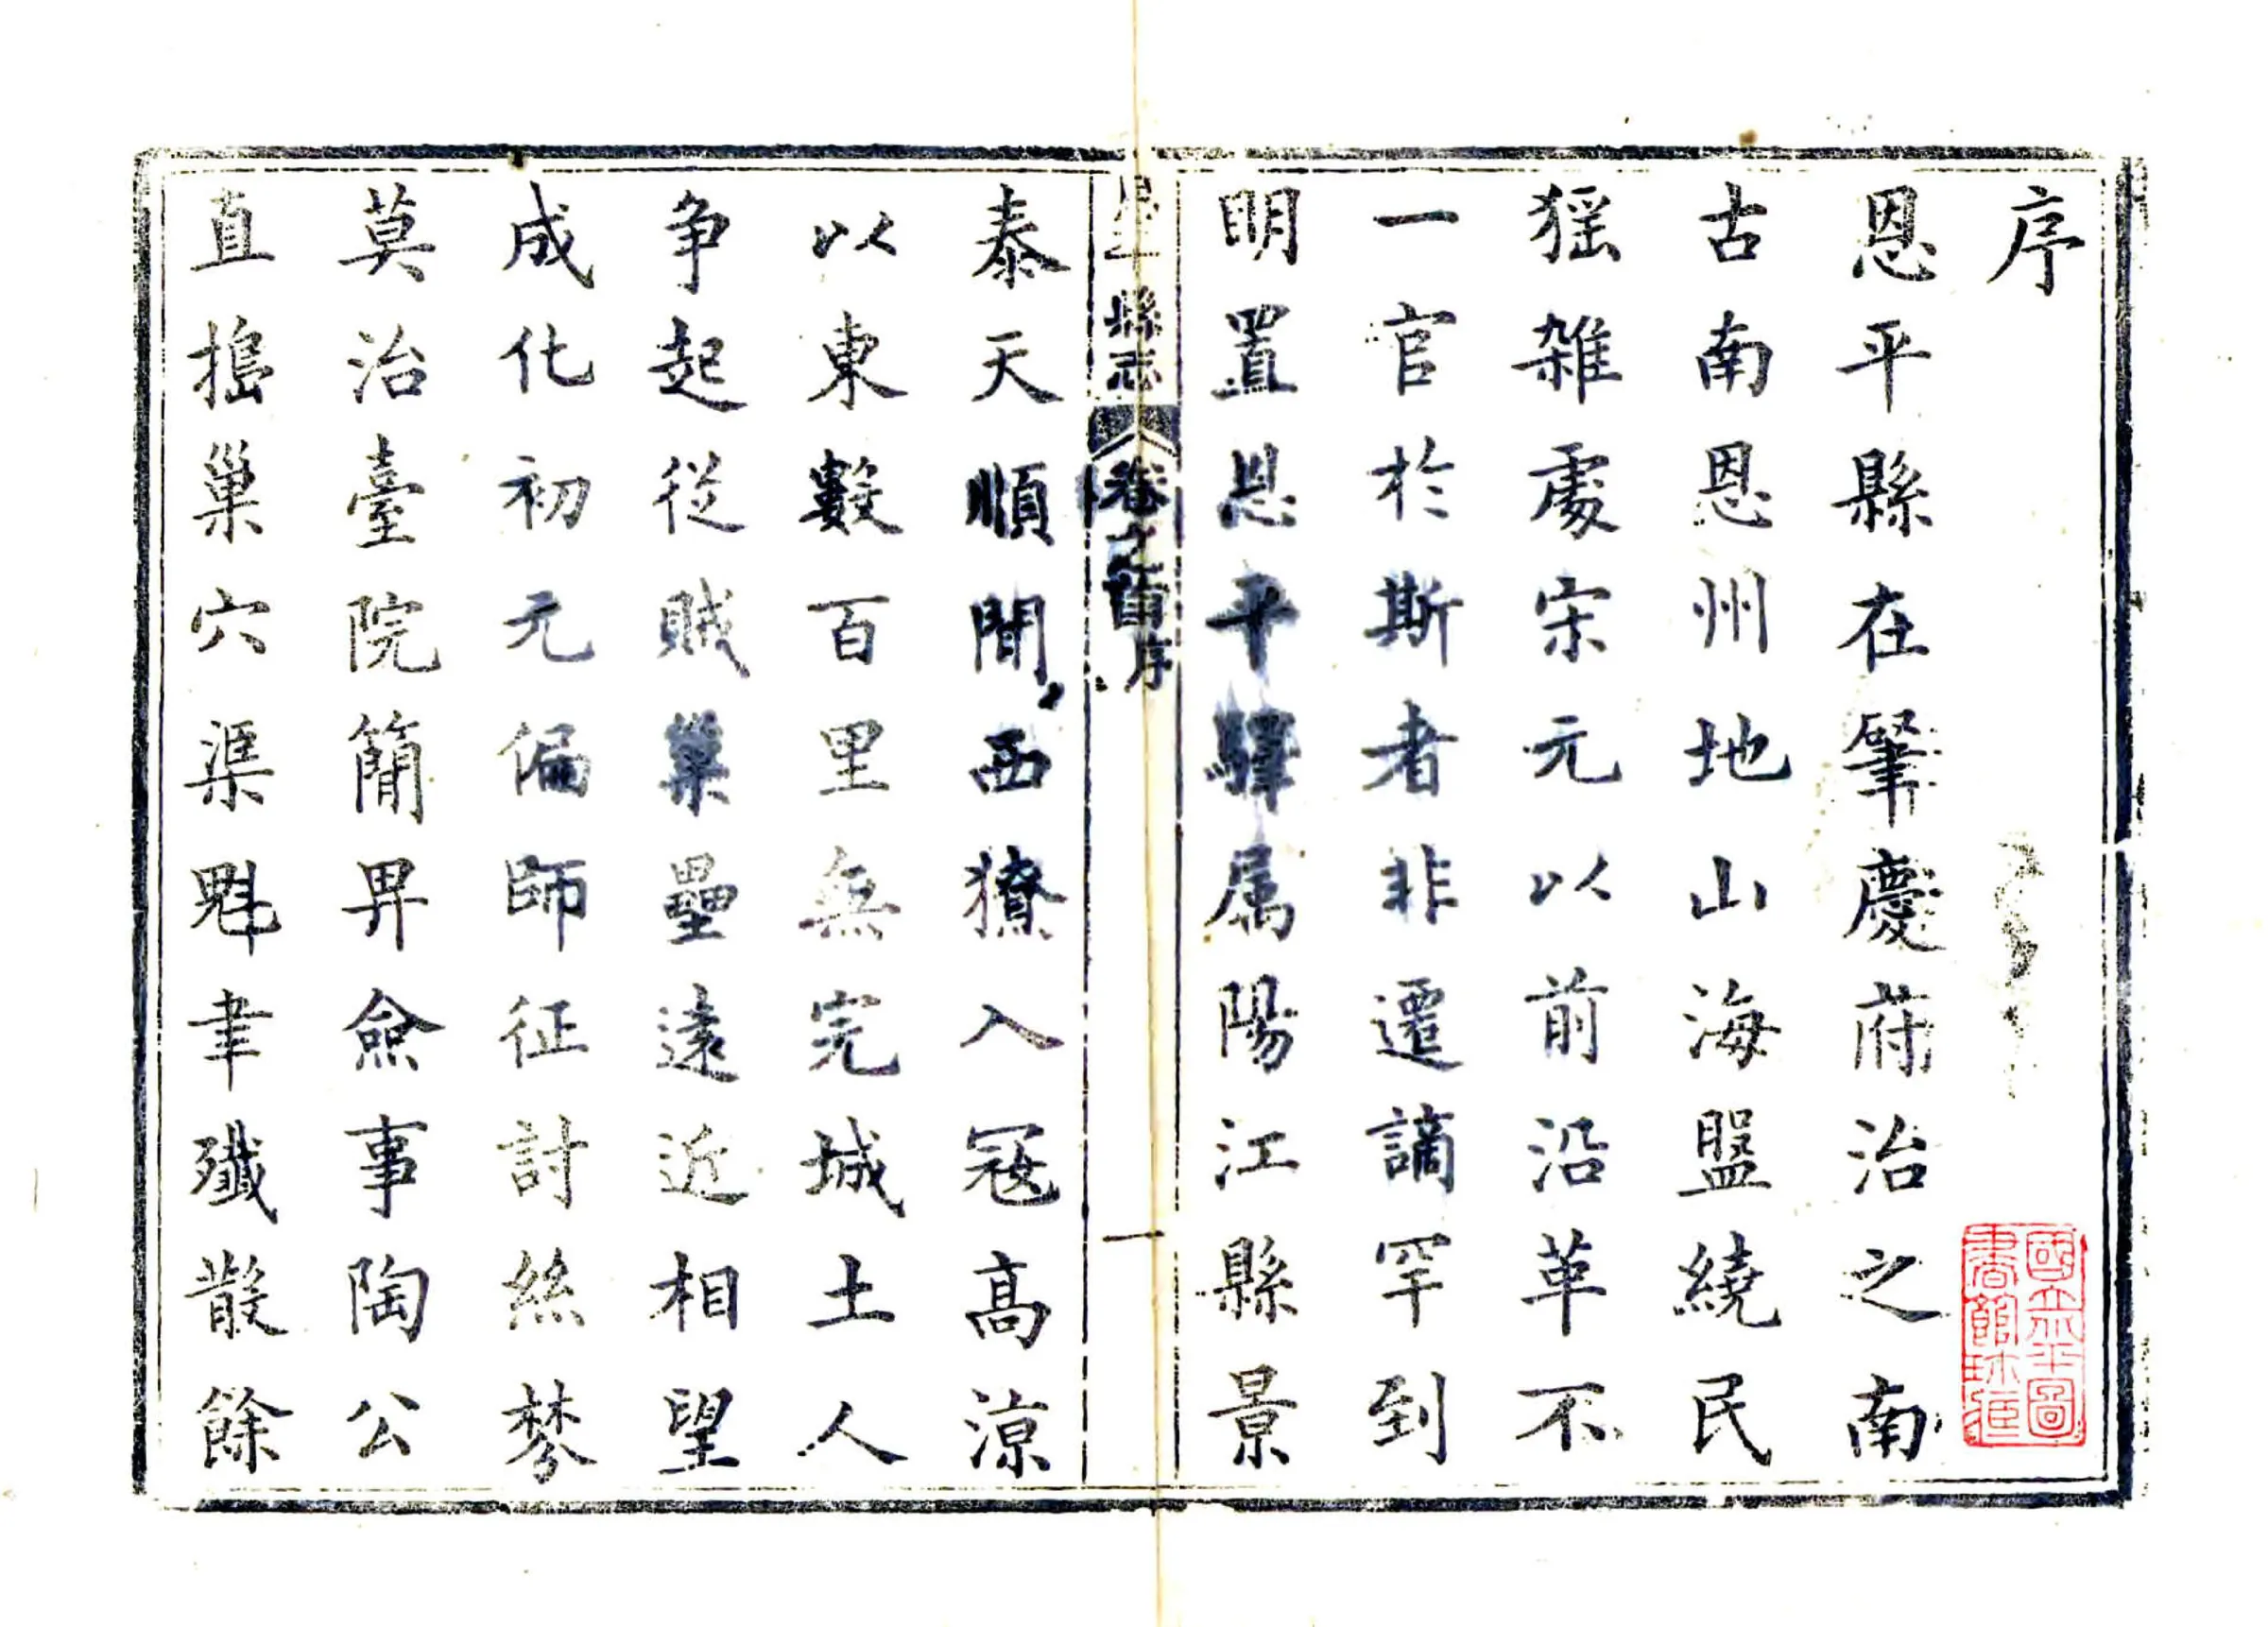 序
恩平縣在肇慶府治之南
古南恩州地山海盤繞民
猺雑處宋元以前沿革不
一官於斯者非遷謫罕到
明置恩平驛属陽江縣景
恩平縣志 卷之首 序 一
泰天順間西獠入冦髙涼
以東數百里無完城土人
争起從賊巢壘遠近相望
成化初元偏師征討絲棼
莫治臺院簡畀僉事陶公
直搗巢穴渠魁聿殱散餘
國立北平圖
書館珎藏